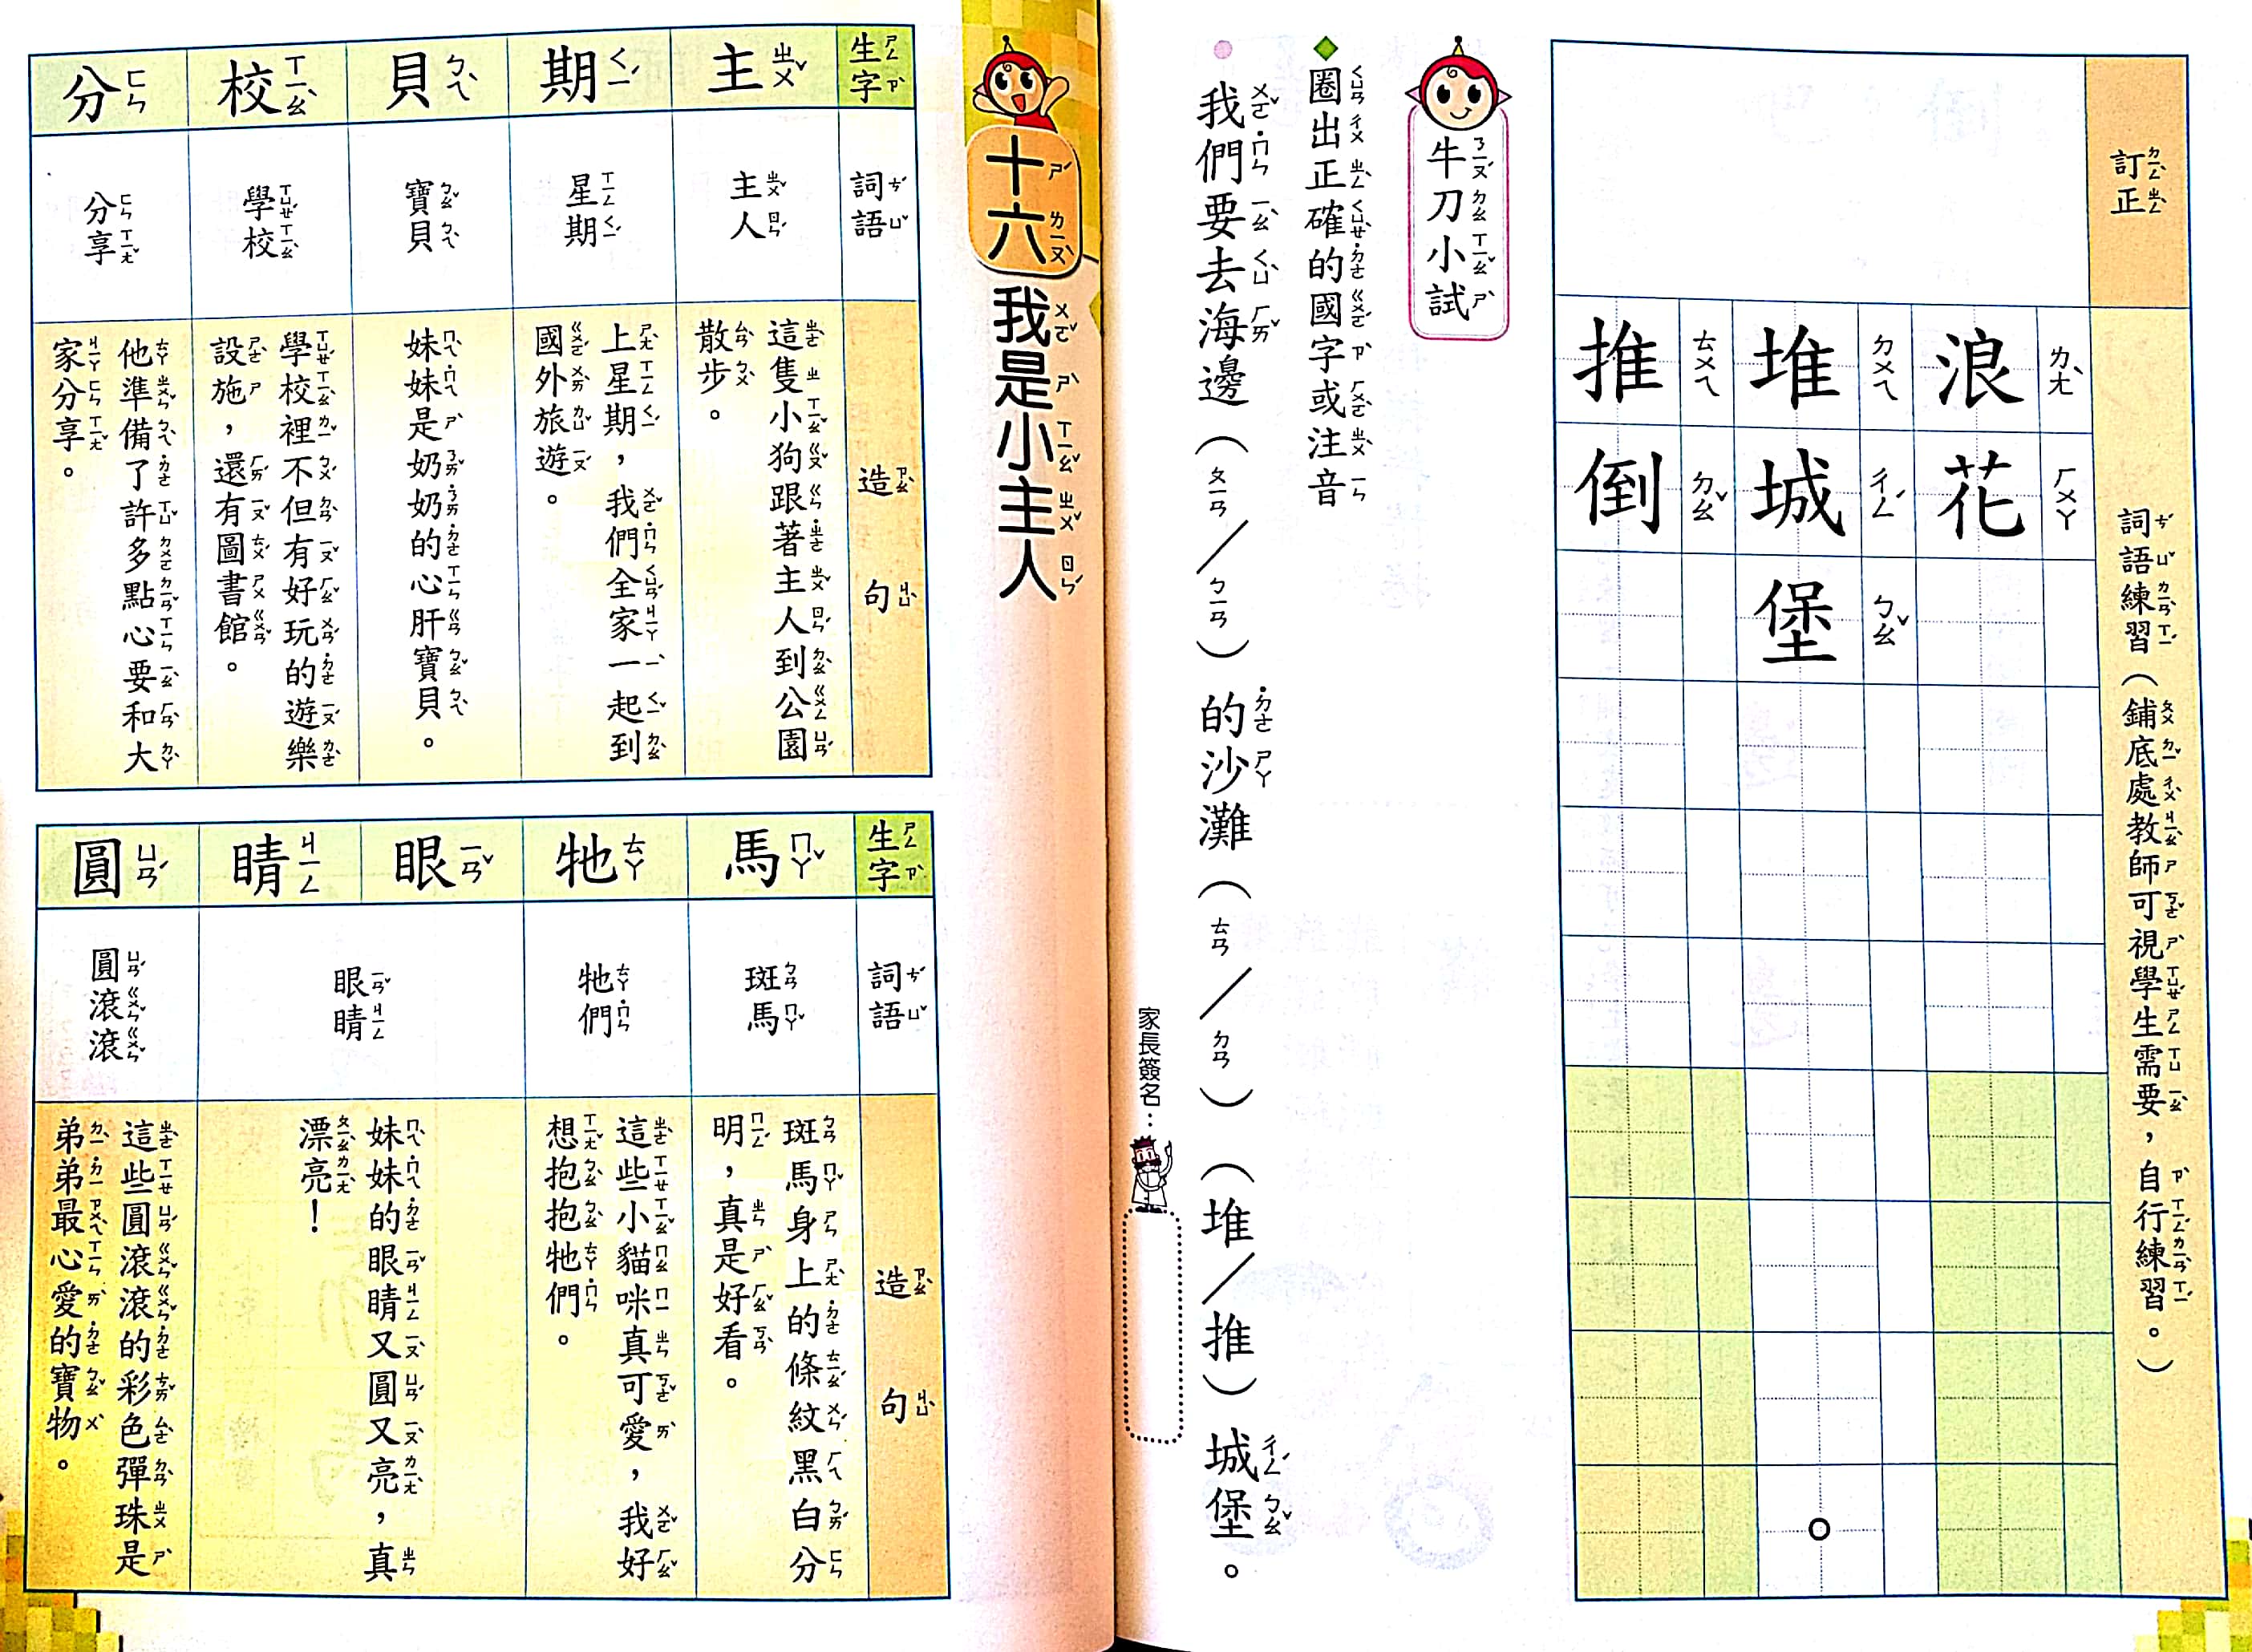 訂正
詞語練習（鋪底處教師可視學生需要，自行練習。）
浪花
ㄌㄤˋ ㄏㄨㄚ
堆城堡
ㄉㄨㄟ ㄔㄥˊ ㄅㄠˇ
推倒
ㄊㄨㄟ ㄉㄠˇ
牛刀小試
圈出正確的國字或注音
我們要去海邊（ㄆㄧㄢ／ㄅㄧㄢ）的沙灘（ㄊㄢ／ㄉㄢ）（堆／推）城堡。
家長簽名：
十六 我是小主人
生字
詞語
造句
主
主人
這隻小狗跟著主人到公園
散步。
期
星期
上星期，我們全家一起到
國外旅遊。
貝
寶貝
妹妹是奶奶的心肝寶貝。
校
學校
學校裡不但有好玩的遊樂
設施，還有圖書館。
分
分享
他準備了許多點心要和大
家分享。
生字
詞語
造句
馬
斑馬
斑馬身上的條紋黑白分
明，真是好看。
牠
牠們
這些小貓咪真可愛，我好
想抱抱牠們。
眼
睛
眼睛
妹妹的眼睛又圓又亮，真
漂亮！
圓
圓滾滾
這些圓滾滾的彩色彈珠是
弟弟最心愛的寶物。